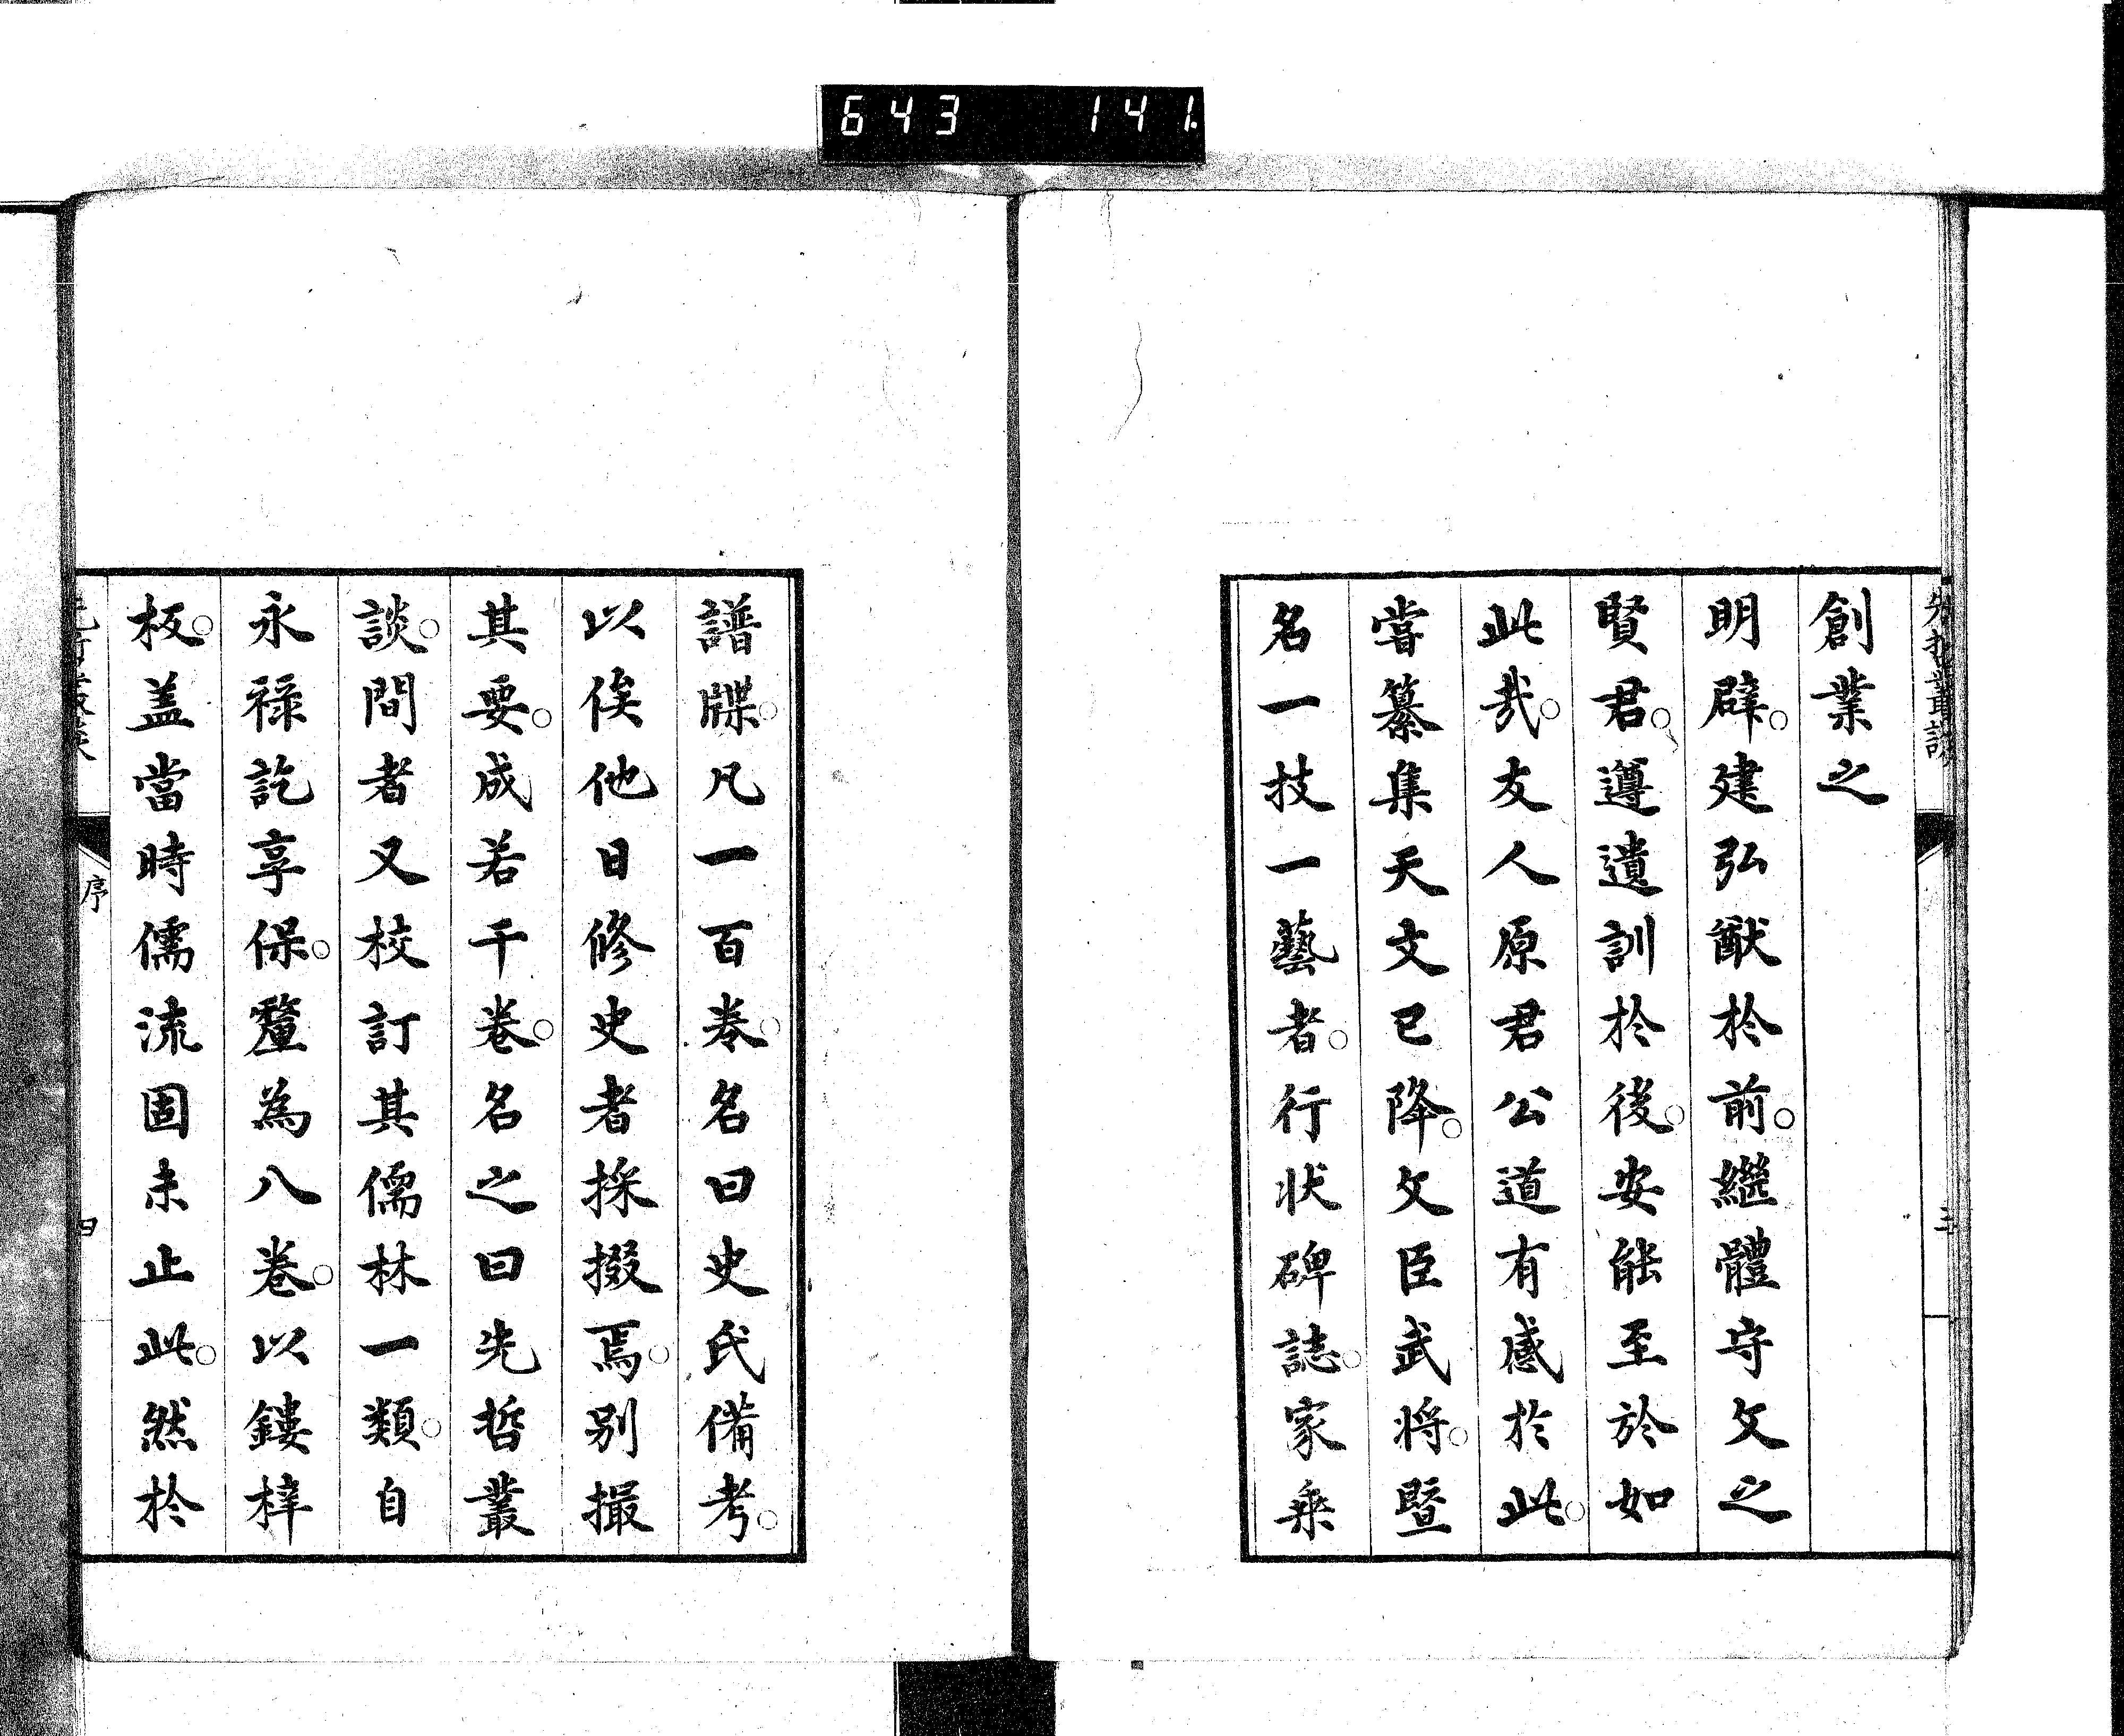 643 141
先哲叢談
三
創業之
明辟。建弘猷於前。繼體守文之
賢君。遵遺訓於後。安能至於如
此哉。友人原君公道有感於此。
嘗纂集天文已降。文臣武将。暨
名一技一藝者。行状碑誌。家乗
譜牒。凡一百巻。名曰史氏備考。
以俟他日修史者採掇焉。別撮
其要。成若干巻。名之曰先哲叢
談。間者又校訂其儒林一類。自
永禄訖享保。釐為八巻。以鏤梓
板。盖當時儒流固未止此。然於
序